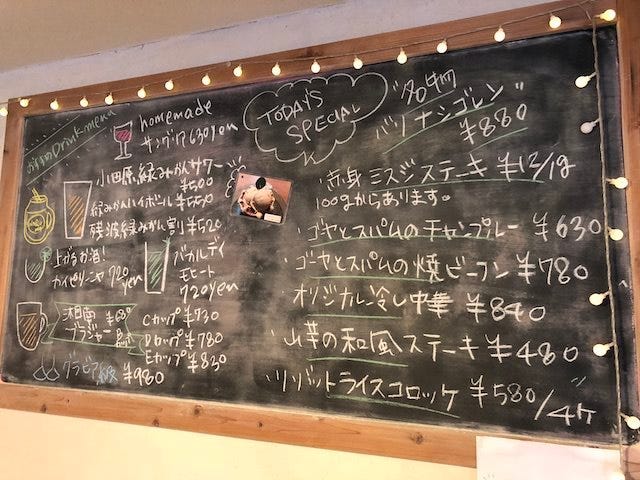 Drink menu
homemade
サングリア 630yen
小田原緑みかんサワー
¥500
緑みかんハイボール ¥550
残波緑みかん割り ¥520
上がるお酒!
カイピリーニャ 720
yen
バカルディ
モヒート
720yen
湘南
ブラジャー
Cカップ ¥730
Dカップ ¥780
Eカップ ¥830
グラビア級 ¥980
TODAY'S
SPECIAL
"名物
バリ ナシゴレン"
¥880
赤身ミスジステーキ ¥12/1g
100gからあります。
ゴーヤとスパムのチャンプルー ¥630
ゴーヤとスパムの焼ビーフン ¥780
オリジナル冷し中華 ¥840
山芋の和風ステーキ ¥480
"リゾットライスコロッケ ¥580/4ヶ"